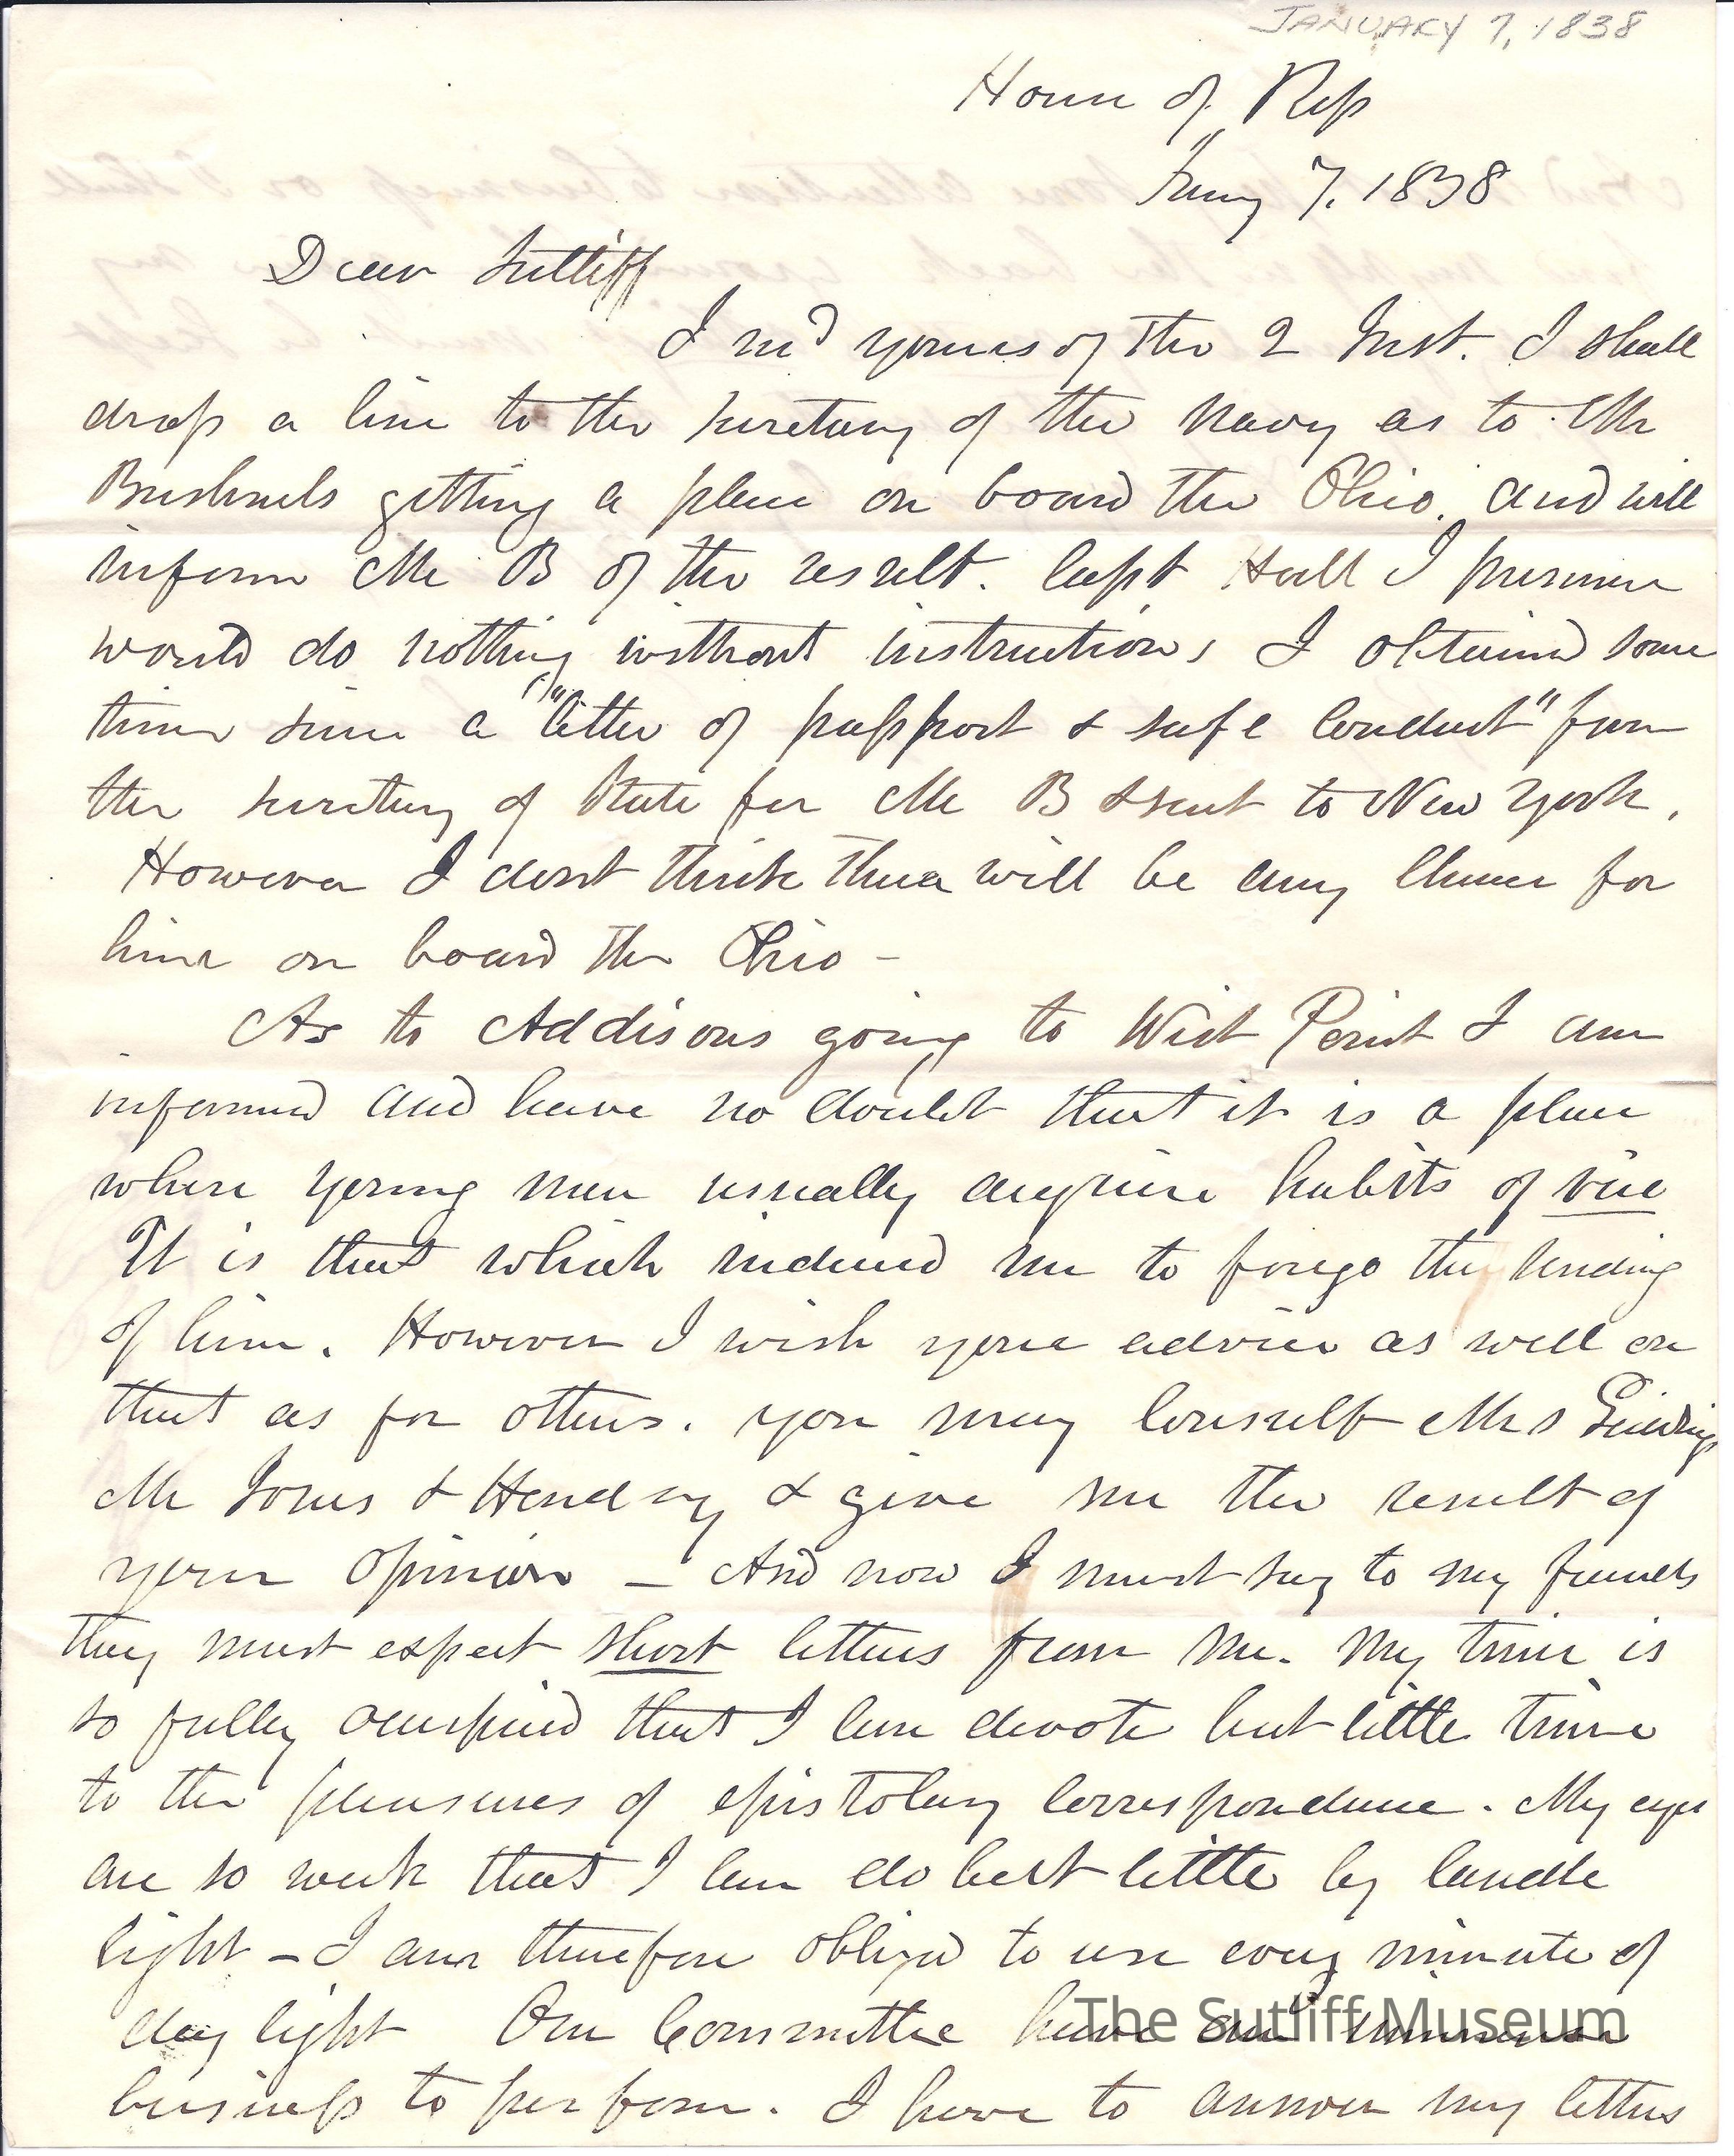 JANUARY 7, 1838
House of Reps
Jany 7, 1838
Dear Sutliff
I recd yours of the 2 Inst. I shall
drop a line to the secretary of the Navy as to Mr
Bushnels getting a place on board the Ohio. and will
inform Mr B of the result. Capt Hall I presume
would do nothing without instructions I obtained some
time since a "letter of passport & safe conduct" from
the secretary of State for Mr B & sent to New York.
However I dont think there will be any chance for
him on board the Ohio -
As to Addisons going to West Point I am
informed and have no doubt that it is a place
where young men usually acquire habits of vice
It is that which induced me to forego the sending
of him. However I wish your advice as well on
that as for others. you may consult Mrs Giddings
Mr Jones & Hendry & give me the result of
your opinion - And now I must say to my friends
they must expect short letters from me. My time is
so fully occupied that I can devote but little time
to the pleasures of epistolary correspondence. My eyes
are so weak that I can do but little by candle
light - I am therefore obliged to use every minute of
day light Our Committee have an immense
business to perform. I have to answer my letters
The Sutliff Museum